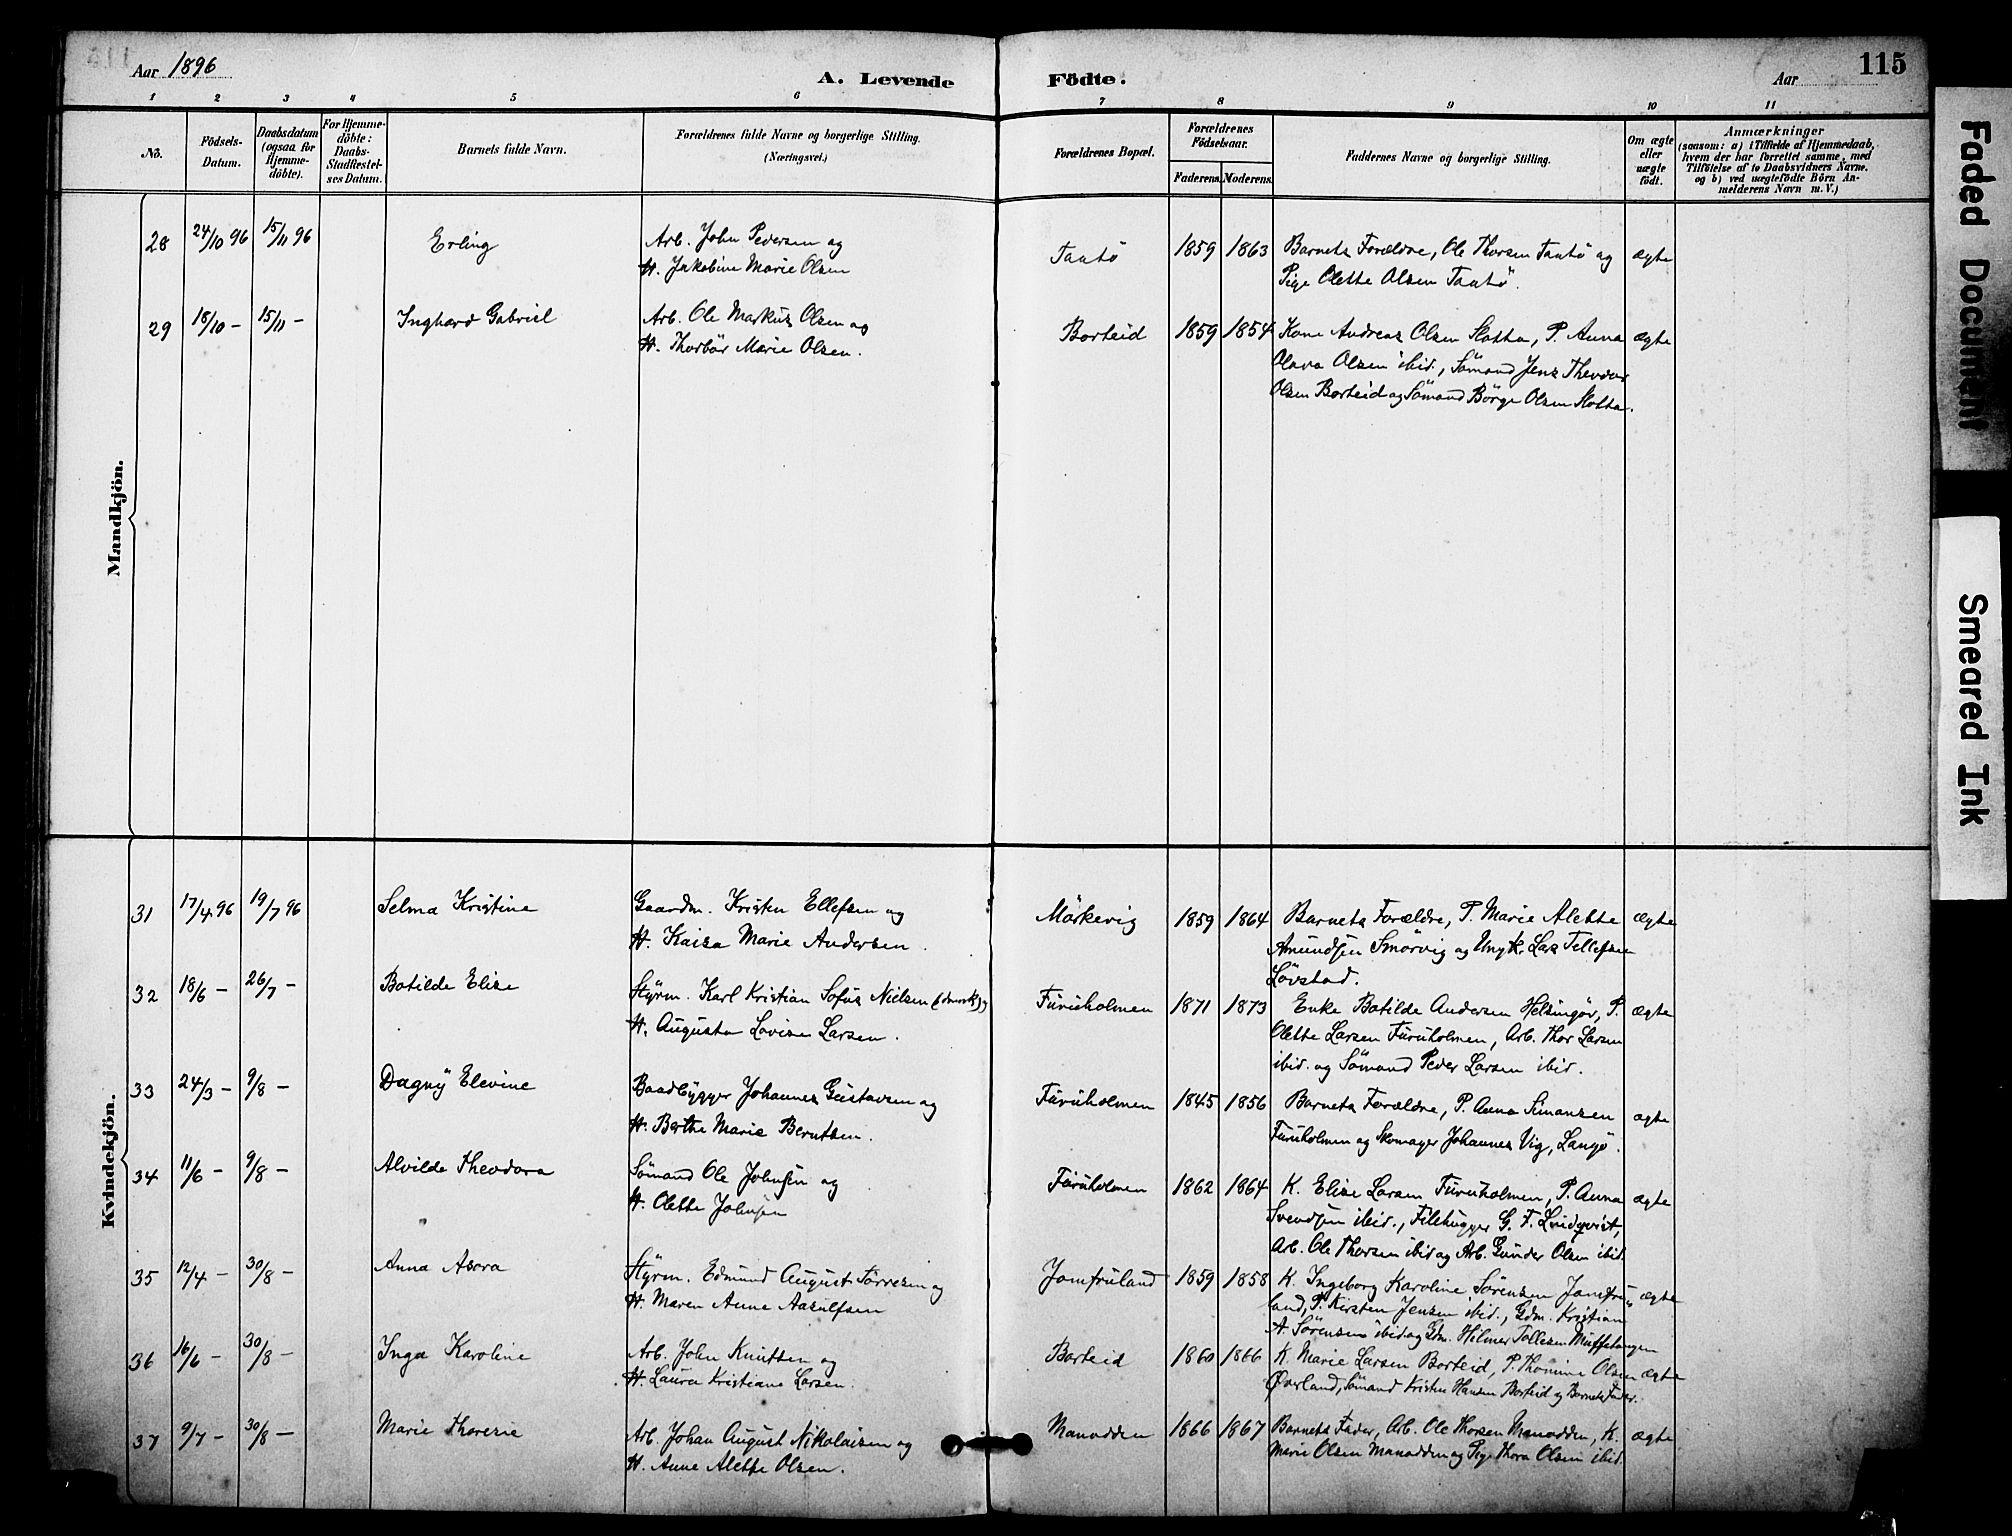 Aar 1896
A. Levende Födte.
Aar
115
1 2 3 4 5 6 7 8 9 10 11
No.
Födsels-Datum.
Daabsdatum (ogsaa for Hjemme-döbte).
For Hjemme-döbte: Daabs-Stadfæstel-ses Datum.
Barnets fulde Navn.
Forældrenes fulde Navne og borgerlige Stilling.
(Næringsvei.)
Forældrenes Bopæl.
Forældrenes Födselsaar.
Faderens. Moderens.
Faddernes Navne og borgerlige Stilling.
Om ægte eller uægte födt.
Anmærkninger
(saasom: a) i Tilfælde af Hjemmedaab, hvem der har forrettet samme, med Tilföielse af to Daabsvidners Navne. og b) ved uægtefödte Börn Anmelderens Navn m. V.)
Mandkjön.
28 24/10 96 15/11 96 Erling Arb. John Pedersen og Taatö 1859 1863 Barnets Forældre, Ole Thorsen Taatö og ægte
H. Jakobine Marie Olsen Pige Olette Olsen Taatö.
29 18/10 - 15/11 - Inghard Gabriel Arb. Ole Markus Olsen og Borteid 1859 1854 Kone Andrea Olsen Slotta, P. Anna ægte
H. Thorbör Marie Olsen. Olava Olsen ibid., Sömand Jens Theodor
Olsen Borteid og Sömand Börge Olsen Slotta.
Kvindekjön.
31 17/4 96 19/7 96 Selma Kristine Gaardm. Kristen Ellefsen og Mörkevig 1859 1864 Barnets Forældre, P. Marie Alette ægte
H. Kaisa Marie Andersen. Amundsen Smörvig og Ungk. Lars Tellefsen
Lövstad.
32 18/6 - 26/7 - Botilde Elise Styrm. Karl Kristian Sofus Nielsen (dansk) og Furuholmen 1871 1873 Enke Botilde Andersen Helsingör, P. ægte
H. Augusta Lovise Larsen. Olette Larsen Furuholmen, Arb. Thor Larsen
ibid. og Sömand Peder Larsen ibid.
33 24/3 - 9/8 - Dagny Elevine Baadbygger Johannes Gustavsen og Furuholmen 1845 1856 Barnets Forældre, P. Anna Simonsen ægte
H. Berthe Marie Berntsen. Furuholmen og Skomager Johannes Vig, Langö.
34 11/6 - 9/8 - Alvilde Theodora Sömand Ole Johnsen og Furuholmen 1862 1864 K. Elise Larsen Furuholmen, P. Anna ægte
H. Olette Johnsen Svendsen ibid., Filehugger G. F. Lindqvist,
Arb. Ole Thorsen ibid og Arb. Gunder Olsen ibid.
35 12/4 - 30/8 - Anna Asora Styrm. Edmund August Törresen og Jomfruland 1859 1858 K. Ingeborg Karoline Sörensen Jomfru- ægte
H. Maren Anne Aasulfsen land, P. Kirsten Jensen ibid., Gdm. Kristian
A. Sörensen ibid og Gdm. Hilmer Tollefsen Muffetangen
36 16/6 - 30/8 - Inga Karoline Arb. John Knutsen og Borteid 1860 1866 K. Marie Larsen Borteid, P. Thomine Olsen ægte
H. Laura Kristiane Larsen. Øverland, Sömand Kristen Hansen Borteid og Barnets Fader.
37 9/7 - 30/8 - Marie Theresie Arb. Johan August Nikolaisen og Manodden 1866 1867 Barnets Fader, Arb. Ole Thorsen Manodden, K. ægte
H. Anne Alette Olsen. Marie Olsen Manodden og Pige Thora Olsen ibid.
Faded Document
Smeared Ink